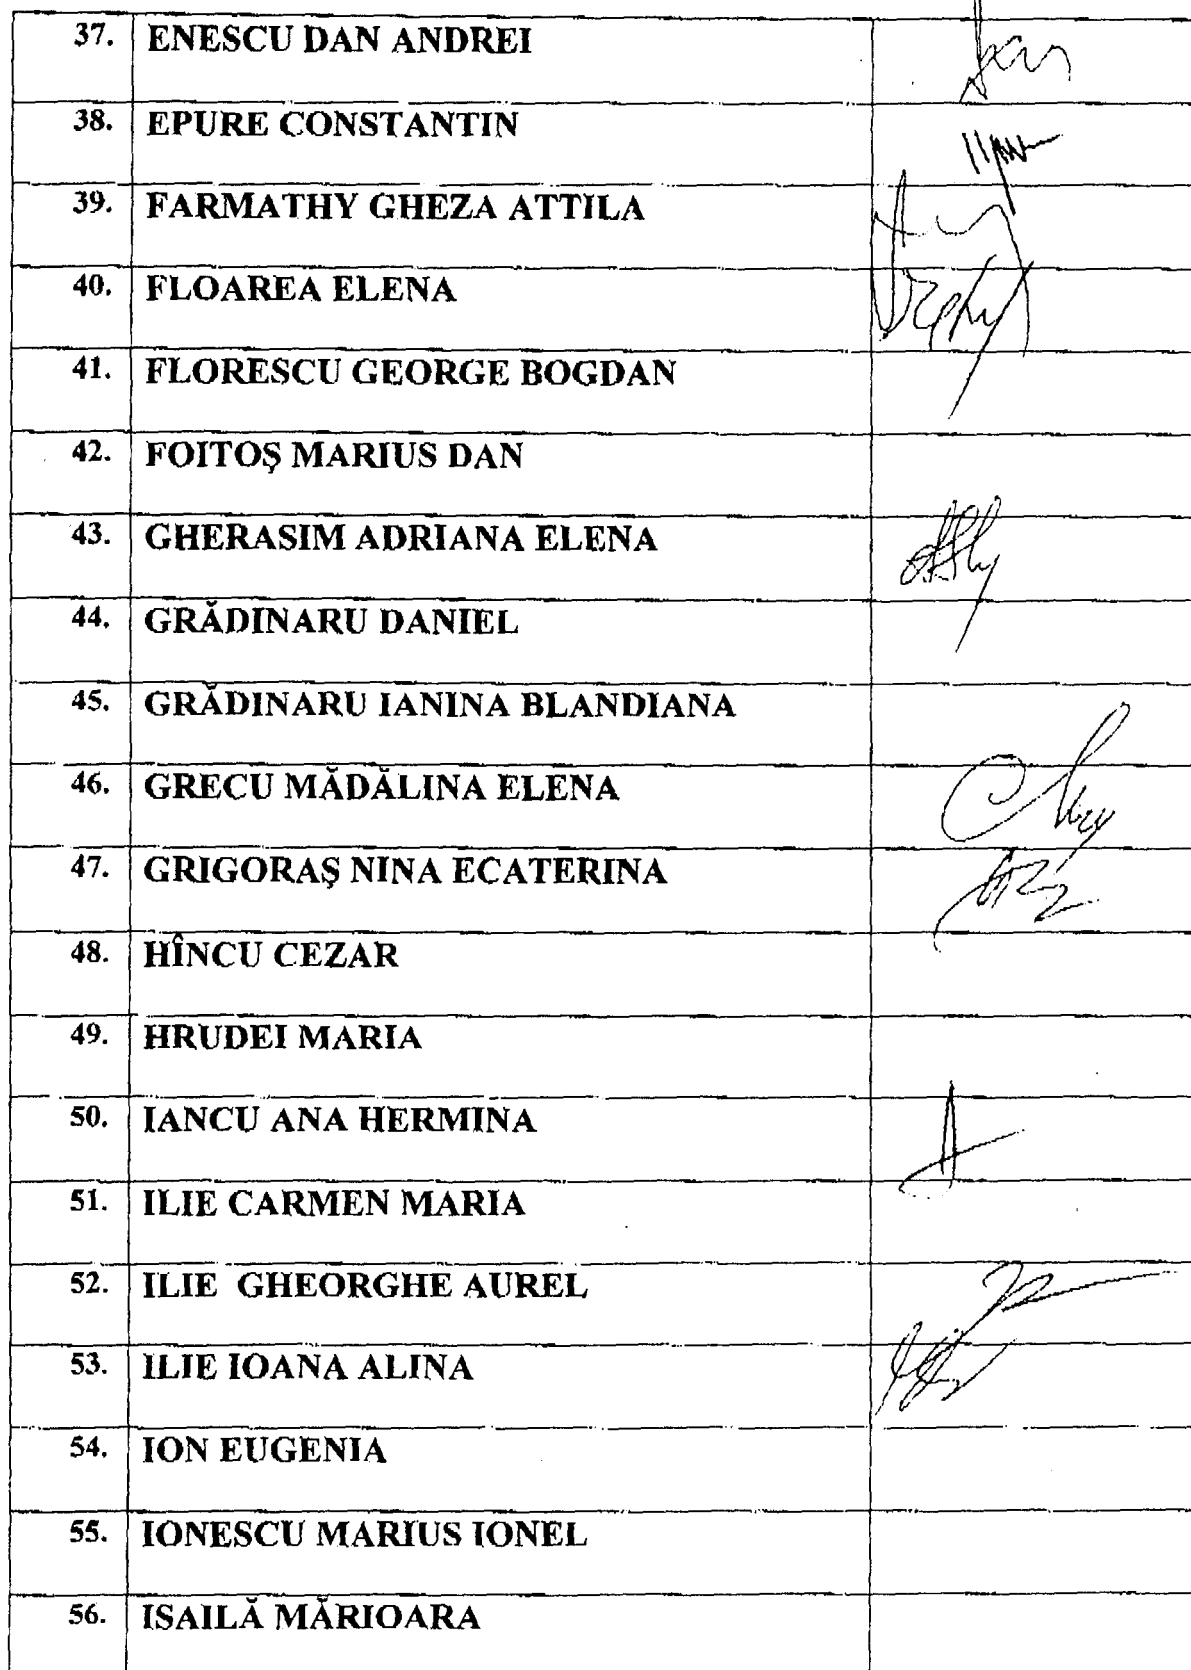 37. ENESCU DAN ANDREI
38. EPURE CONSTANTIN
39. FARMATHY GHEZA ATTILA
40. FLOAREA ELENA
41. FLORESCU GEORGE BOGDAN
42. FOITOŞ MARIUS DAN
43. GHERASIM ADRIANA ELENA
44. GRĂDINARU DANIEL
45. GRĂDINARU IANINA BLANDIANA
46. GRECU MĂDĂLINA ELENA
47. GRIGORAŞ NINA ECATERINA
48. HÎNCU CEZAR
49. HRUDEI MARIA
50. IANCU ANA HERMINA
51. ILIE CARMEN MARIA
52. ILIE GHEORGHE AUREL
53. ILIE IOANA ALINA
54. ION EUGENIA
55. IONESCU MARIUS IONEL
56. ISAILĂ MĂRIOARA